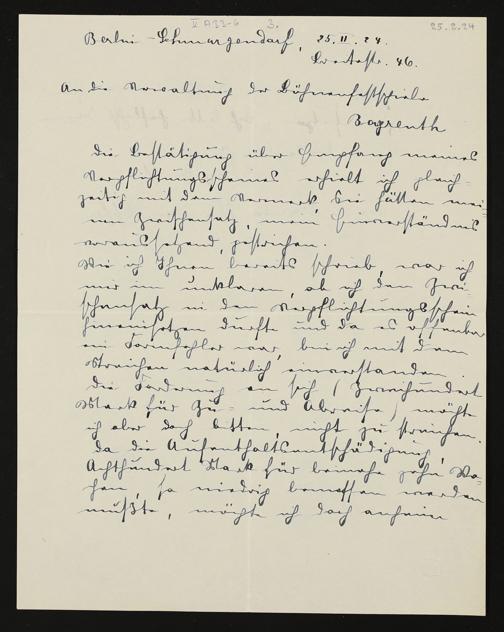 V A 23-6 3. 25.2.24
Berlin-Schmargendorf, 25. II. 24.
Breitestr. 46.
An die Verwaltung der Bühnenfestspiele
Bayreuth
Die Bestätigung über Empfang meines
Verpflichtungsscheines erhielt ich gleich-
zeitig mit dem Vermerk, Sie hätten mei-
nen Zwischensatz, mein Einverständnis
voraussetzend, gestrichen.
Wie ich Ihnen bereits schrieb, war ich
mir im unklaren, ob ich den Zwi-
schensatz in den Verpflichtungsschein
hineinsetzen durfte und da es offenbar
ein Formfehler war, bin ich mit dem
Streichen natürlich einverstanden.
Die Forderung an sich (Zweihundert
Mark für Zu- und Abreise) möchte
ich aber doch bitten, nicht zu streichen.
Da die Aufenthaltsentschädigung,
Achthundert Mark für beinahe zehn Wo-
chen, so niedrig bemessen werden
mußte, möchte ich doch anheim